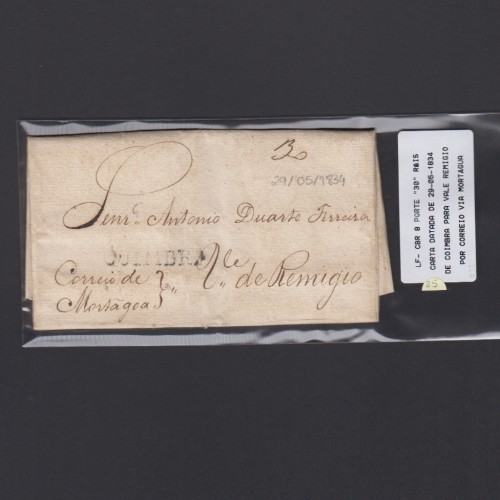 30
29/05/1834
Senr. Antonio Duarte Ferreira
COIMBRA
Correio de
Mortágoa
Vle de Remigio
LF- CBR 8 PORTE "30" RÉIS
CARTA DATADA DE 29-05-1834
DE COIMBRA PARA VALE REMIGIO
POR CORREIO VIA MORTÁGUA
25